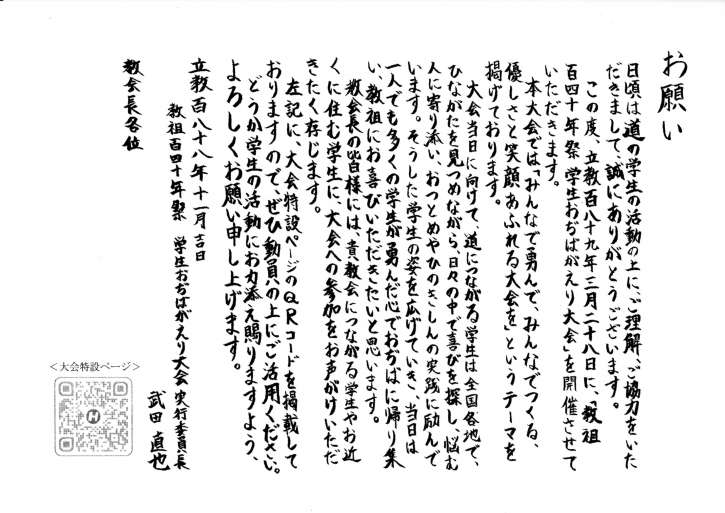 お願い
日頃は道の学生の活動の上に、ご理解、ご協力をいた
だきまして、誠にありがとうございます。
この度、立教百八十九年三月二十八日に、「教祖
百四十年祭 学生おぢばがえり大会」を開催させて
いただきます。
本大会では「みんなで勇んで、みんなでつくる、
優しさと笑顔あふれる大会を」というテーマを
掲げております。
大会当日に向けて、道につながる学生は全国各地で、
ひながたを見つめながら、日々の中で喜びを探し、悩む
人に寄り添い、おつとめやひのきしんの実践に励んで
います。そうした学生の姿を広げていき、当日は
一人でも多くの学生が勇んだ心でおぢばに帰り集
い、教祖にお喜びいただきたいと思います。
教会長の皆様には、貴教会につながる学生やお近
くに住む学生に、大会への参加をお声がけいただ
きたく存じます。
左記に、大会特設ページのQRコードを掲載して
おりますので、ぜひ動員の上にご活用ください。
どうか学生の活動にお力添え賜りますよう、
よろしくお願い申し上げます。
立教百八十八年十一月吉日
教祖百四十年祭 学生おぢばがえり大会 実行委員長
武田 直也
教会長各位
＜大会特設ページ＞